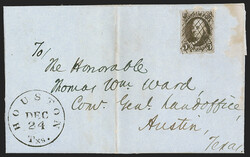 To
The Honorable
Thomas Wm Ward,
Com. Genl Land office,
Austin,
Texas,
HOUSTON
DEC
24
Txs.